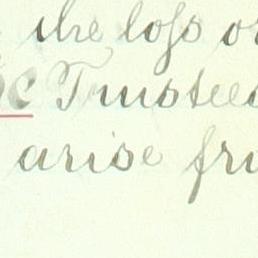 the loss or
Trustees
arise fro